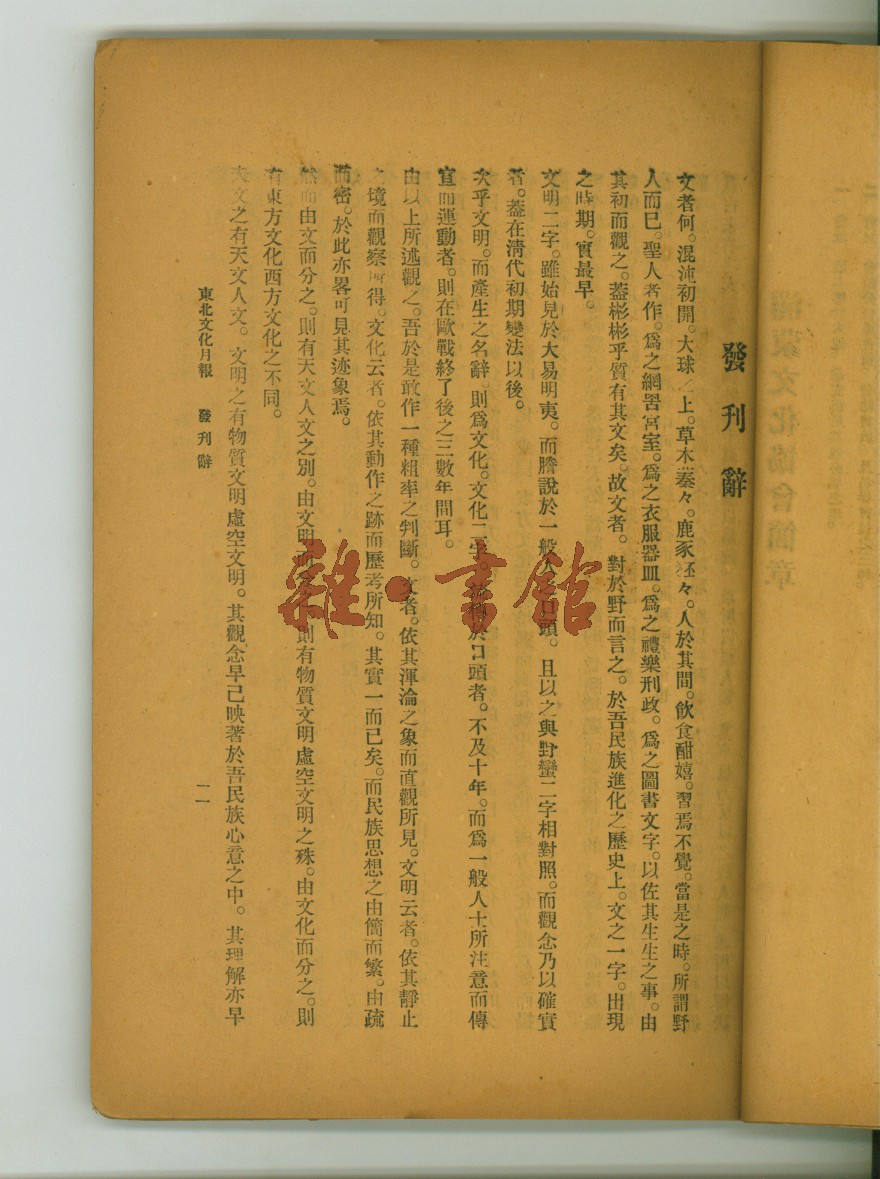 發刊辭
文者何。混沌初開。大球之上。草木蓁々。鹿豕狉々。人於其間。飮食酣嬉。習焉不覺。當是之時。所謂野
人而已。聖人者作。爲之網罟宮室。爲之衣服器皿。爲之禮樂刑政。爲之圖書文字。以佐其生生之事。由
其初而觀之。蓋彬彬乎質有其文矣。故文者。對於野而言之。於吾民族進化之歷史上。文之一字。出現
之時期。實最早。
文明二字。雖始見於大易明夷。而騰說於一般人之口頭。且以之與野蠻二字相對照。而觀念乃以確實
者。蓋在淸代初期變法以後。
次乎文明。而產生之名辭。則爲文化。文化二字。於口頭者。不及十年。而爲一般人士所注意而傳
宣而運動者。則在歐戰終了後之三數年間耳。
由以上所述觀之。吾於是敢作一種粗率之判斷。文者。依其渾淪之象而直觀所見。文明云者。依其靜止
之境而觀察所得。文化云者。依其動作之跡而歷考所知。其實一而已矣。而民族思想之由簡而繁。由疏
而密。於此亦畧可見其迹象焉。
然而由文而分之。則有天文人文之別。由文明而分之。則有物質文明虛空文明之殊。由文化而分之。則
有東方文化西方文化之不同。
夫文之有天文人文。文明之有物質文明虛空文明。其觀念早已映著於吾民族心意之中。其理解亦早
東北文化月報 發刊辭 二一
雜·書館